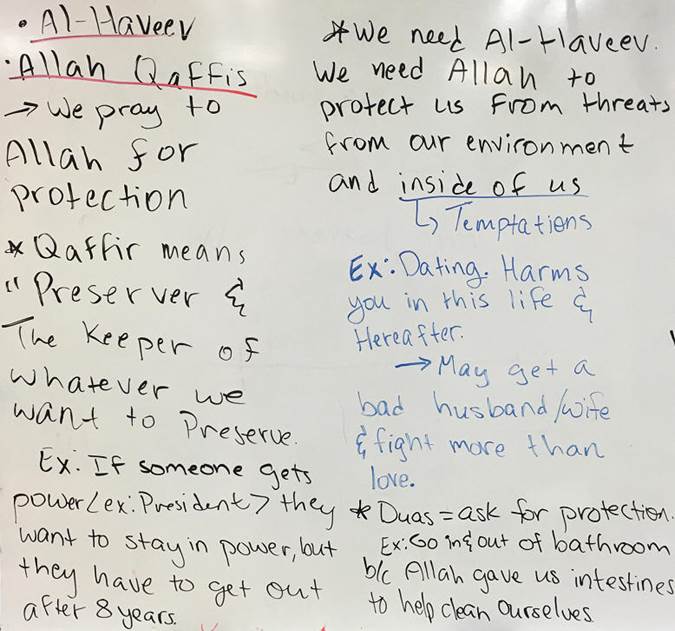 • Al-Haveev
• Allah Qaffis
→ We pray to
Allah for
protection
* Qaffir means
" Preserver &
The Keeper of
whatever we
want to Preserve.
Ex: If someone gets
power <ex: President> they
want to stay in power, but
they have to get out
after 8 years.
* We need Al-Haveev.
We need Allah to
protect us from threats
from our environment
and inside of us
↳ Temptations
Ex: Dating. Harms
you in this life &
Hereafter.
→ May get a
bad husband/wife
& fight more than
love.
* Duas = ask for protection.
Ex: Go in & out of bathroom
b/c Allah gave us intestines
to help clean ourselves